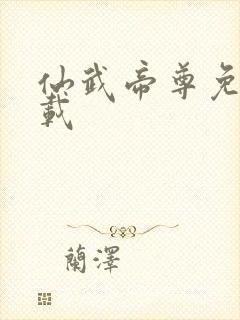 仙武帝尊免
载
蘭澤